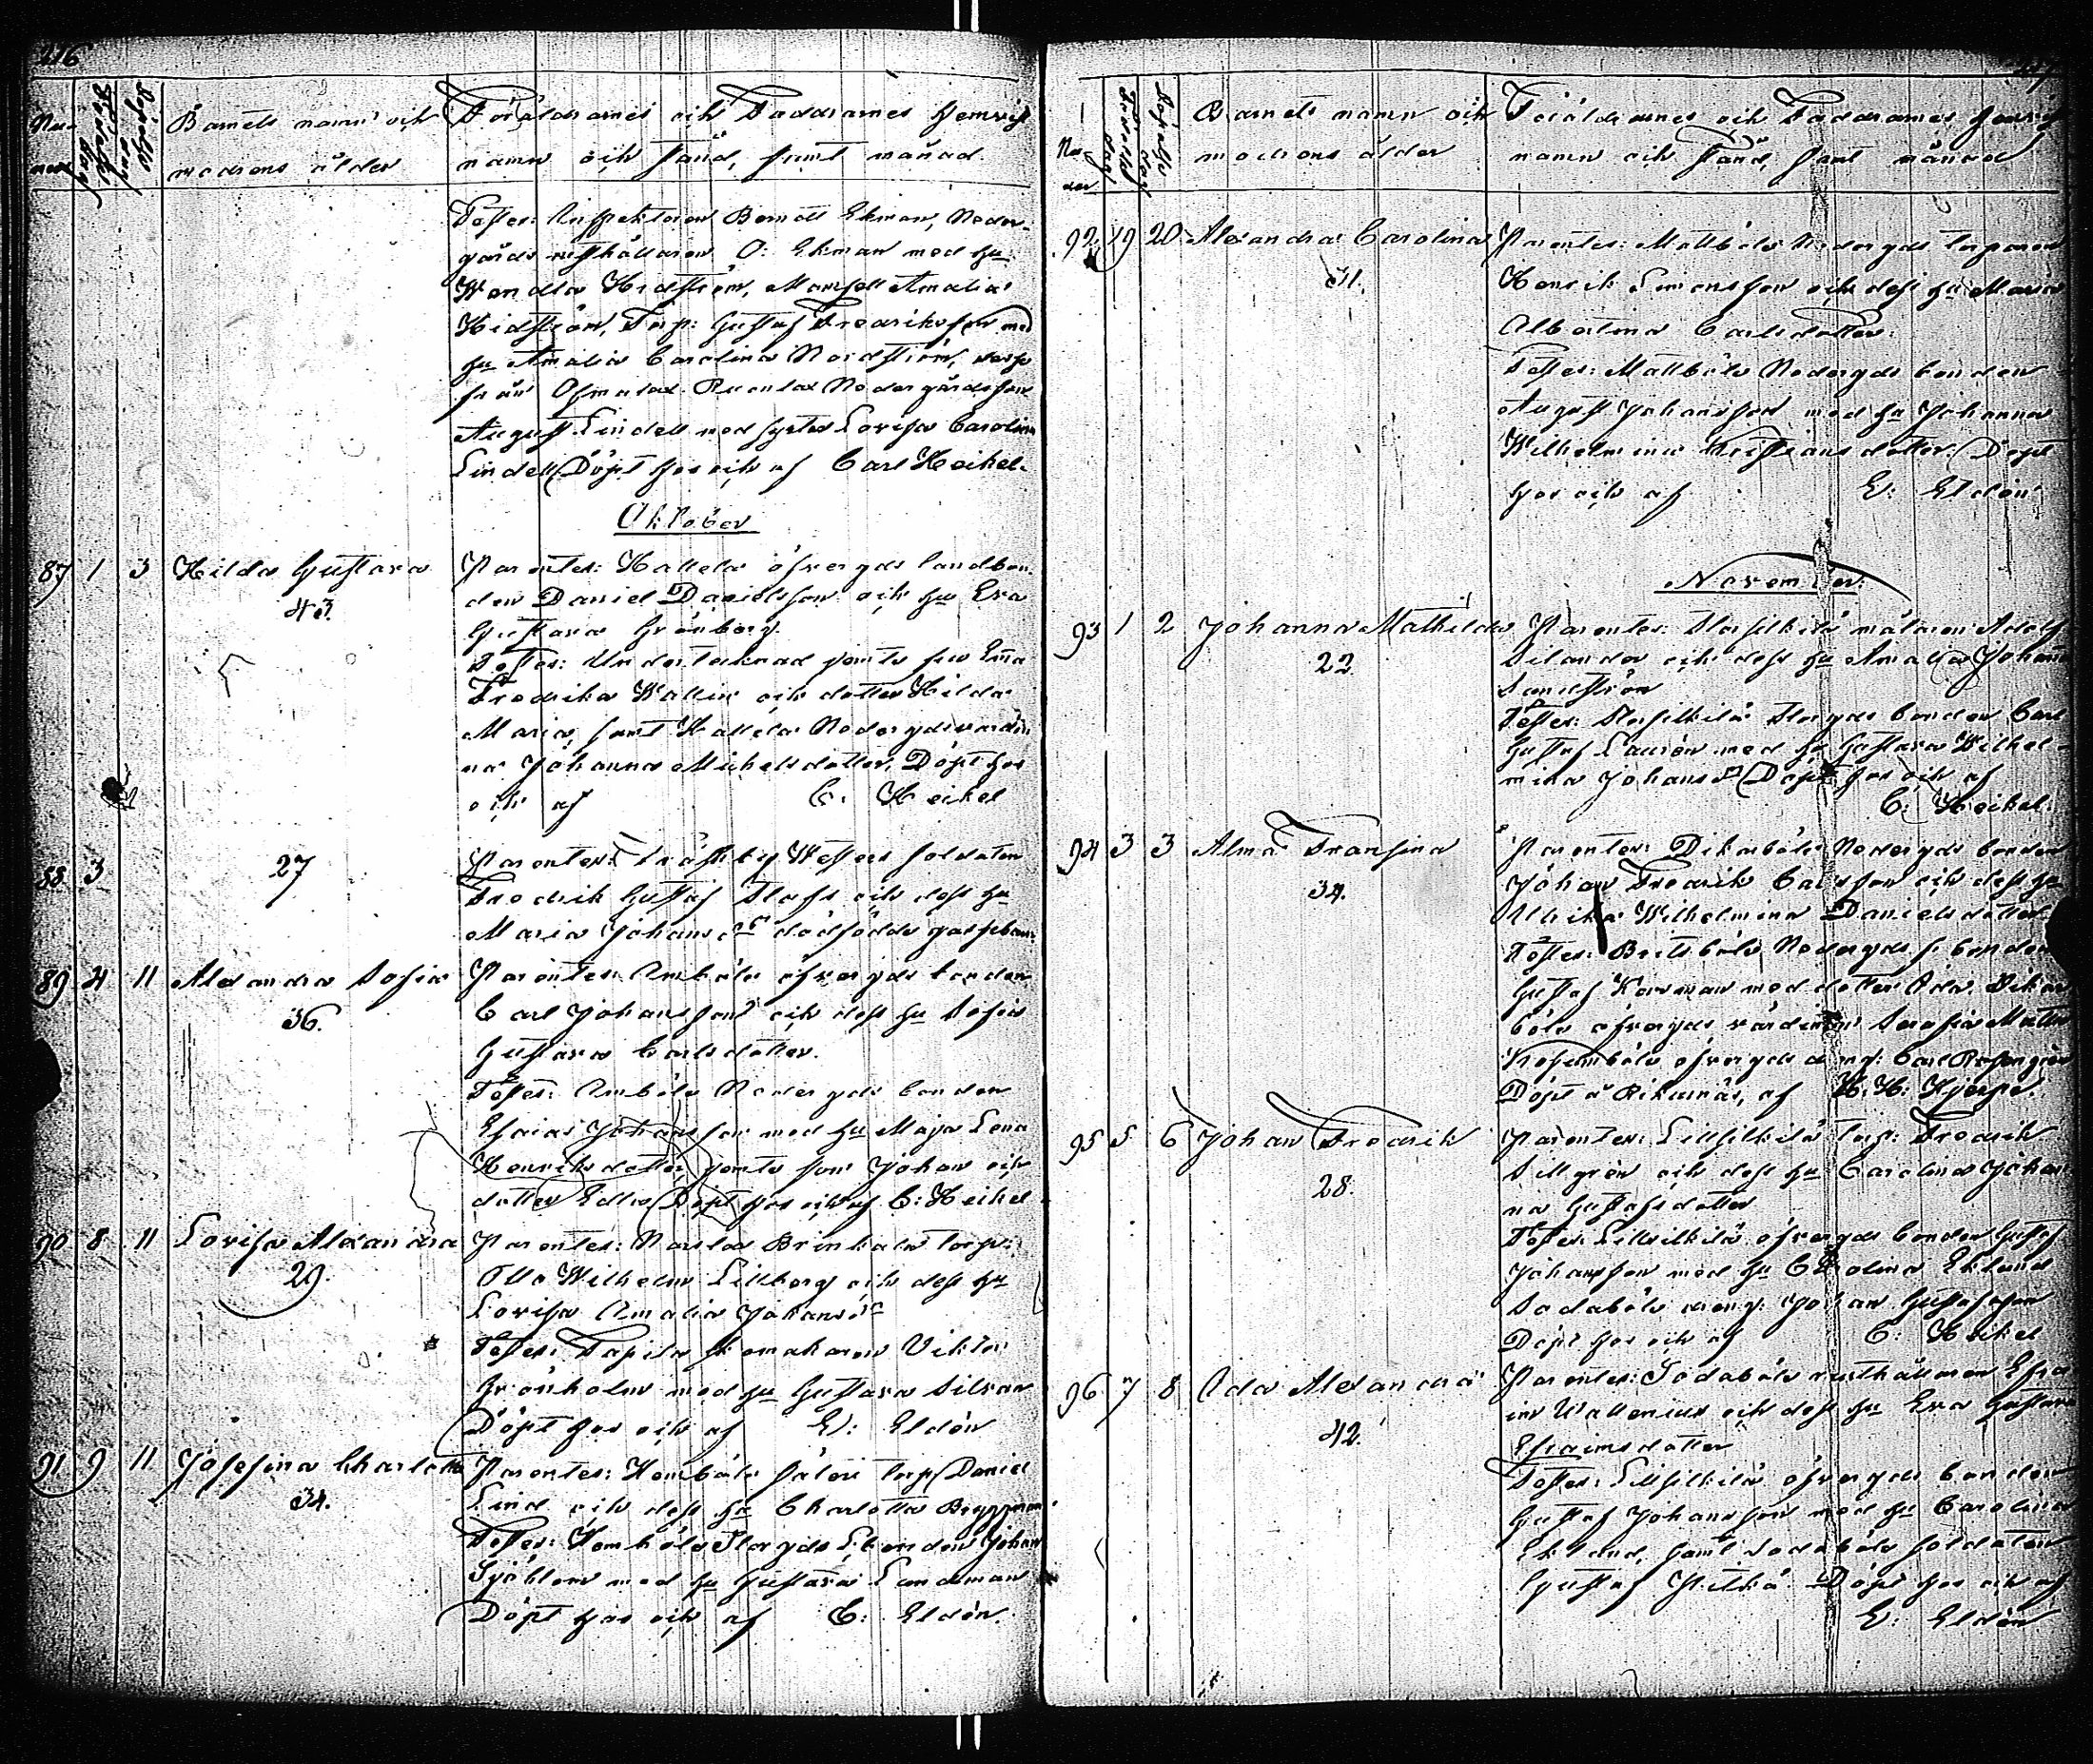 216
Num-
mer
Födelse dag
Döpelse dag
Barnets namn och
modrens ålder
Föräldrarnes och Faddrarnes hemvist
namn och stånd, samt månad.
Testes: Inspektoren Berndt Ekman, Neder-
gårds rusthållaren O: Ekman med hu
Wendla Hidström, Mamsell Amalia
Hidström, Torp: Gustaf Fredriksson med
hu Amalia Carolina Nordström,
från Nedergårds son
August Lindell med syster Lovisa Carolina
Lindell (Döpt hos och af Carl Heikel.
Oktober
87 1 3 Hilda Gustava
43.
Parentes: Kallela öfvergds landbon-
den Daniel Danielsson och hu Eva
Gustava Grönberg.
Testes: Undertecknad jemte fru Emma
Fredrika Wallin och dotter Hilda
Maria, samt Kallela Nedergds värdin-
na Johanna Michelsdotter, Döpt hos
och af C: Heikel
88 3
27
Parentes: Träskby Westers soldaten
Fredrik Gustaf och dess hu
Maria Johansdr dödfödde gossebarn
89 4 11 Alexandra Sofia
36.
Parentes: Amböle öfvergds bonden
Carl Johansson och dess hu Sofia
Gustava Carlsdotter.
Testes: Amböle Nedergds bonden
Esaias Johansson med hu Maja Lena
Henriksdotter jemte son Johan och
dotter Edla (Döpt hos och af C: Heikel
90 8 11 Lovisa Alexandra
29.
Parentes: Brinkala torp:
Otto Wilhelm Lillberg och dess hu
Lovisa Amalia Johansdr
Testes: Tapila skomakaren Viktor
Grönholm med hu Gustava Silvan
Döpt hos och af E: Eldén
91 9 11 Josefina Charlotta
34.
Parentes: Kombåla säteri torp Daniel
Lind och dess hu Charlotta
Testes: Kombåla Storgds L:bonden Johan
Sjöblom med hu Gustava Landeman
Döpt hos och af E: Eldén.
217
Num-
mer
Födelse dag
Döpelse dag
Barnets namn och
modrens ålder
Föräldrarnes och Faddrarnes hemvist
namn och stånd, samt månad
92 19 20 Alexandra Carolina
31.
Parentes: Mattböle Nedergds torparen
Henrik Simonsson och dess hu Maria
Albertina Carlsdotter.
Testes: Mattböle Nedergds bonden
August Johansson med hu Johanna
Wilhelmina Kristiansdotter. (Döpt
hos och af E: Eldén
November.
93 1 2 Johanna Mathilda
22.
Parentes: Storsilkilä målaren Adolf
Silander och dess hu Amalia Johanna
Sandström
Testes: Storsilkilä Storgds bonden Carl
Gustaf Laurén med hu Gustava Wilhel-
mina Johansdr (Döpt hos och af
C: Heikel.
94 3 3 Alma Fransina
34.
Parentes: Dikarböle Nedergds bonden
Johan Fredrik Carlsson och dess hu
Ulrika Wilhelmina Danielsdotter
Testes: Britsböle Nedergds f. bonden
Gustaf Karman med dotter Ida. Dikar-
böle öfvergds värdinnan Serafia
öfvergds dreng: Carl Rosengren
Döpt å af K. H: Hjerpe.
95 5 6 Johan Fredrik
28.
Parentes: Lillsilkilä torp: Fredrik
Sillgrén och dess hu Carolina Johan-
na Gustafsdotter
Testes: Lillsilkilä öfvergds bonden Gustaf
Johansson med hu Carolina Eklund
Sodaböle dreng: Johan Gustafsson
Döpt hos och af C: Heikel
96 7 8 Ida Alexandra
42.
Parentes: Södaböle rusthållaren Efra-
im Wallenius och dess hu Eva Gustava
Efraimsdotter
Testes: Lillsilkilä öfvergds bonden
Gustaf Johansson med hu Carolina
Eklund, samt Sodaböle soldaten
Gustaf Döpt hos och af
E: Eldén